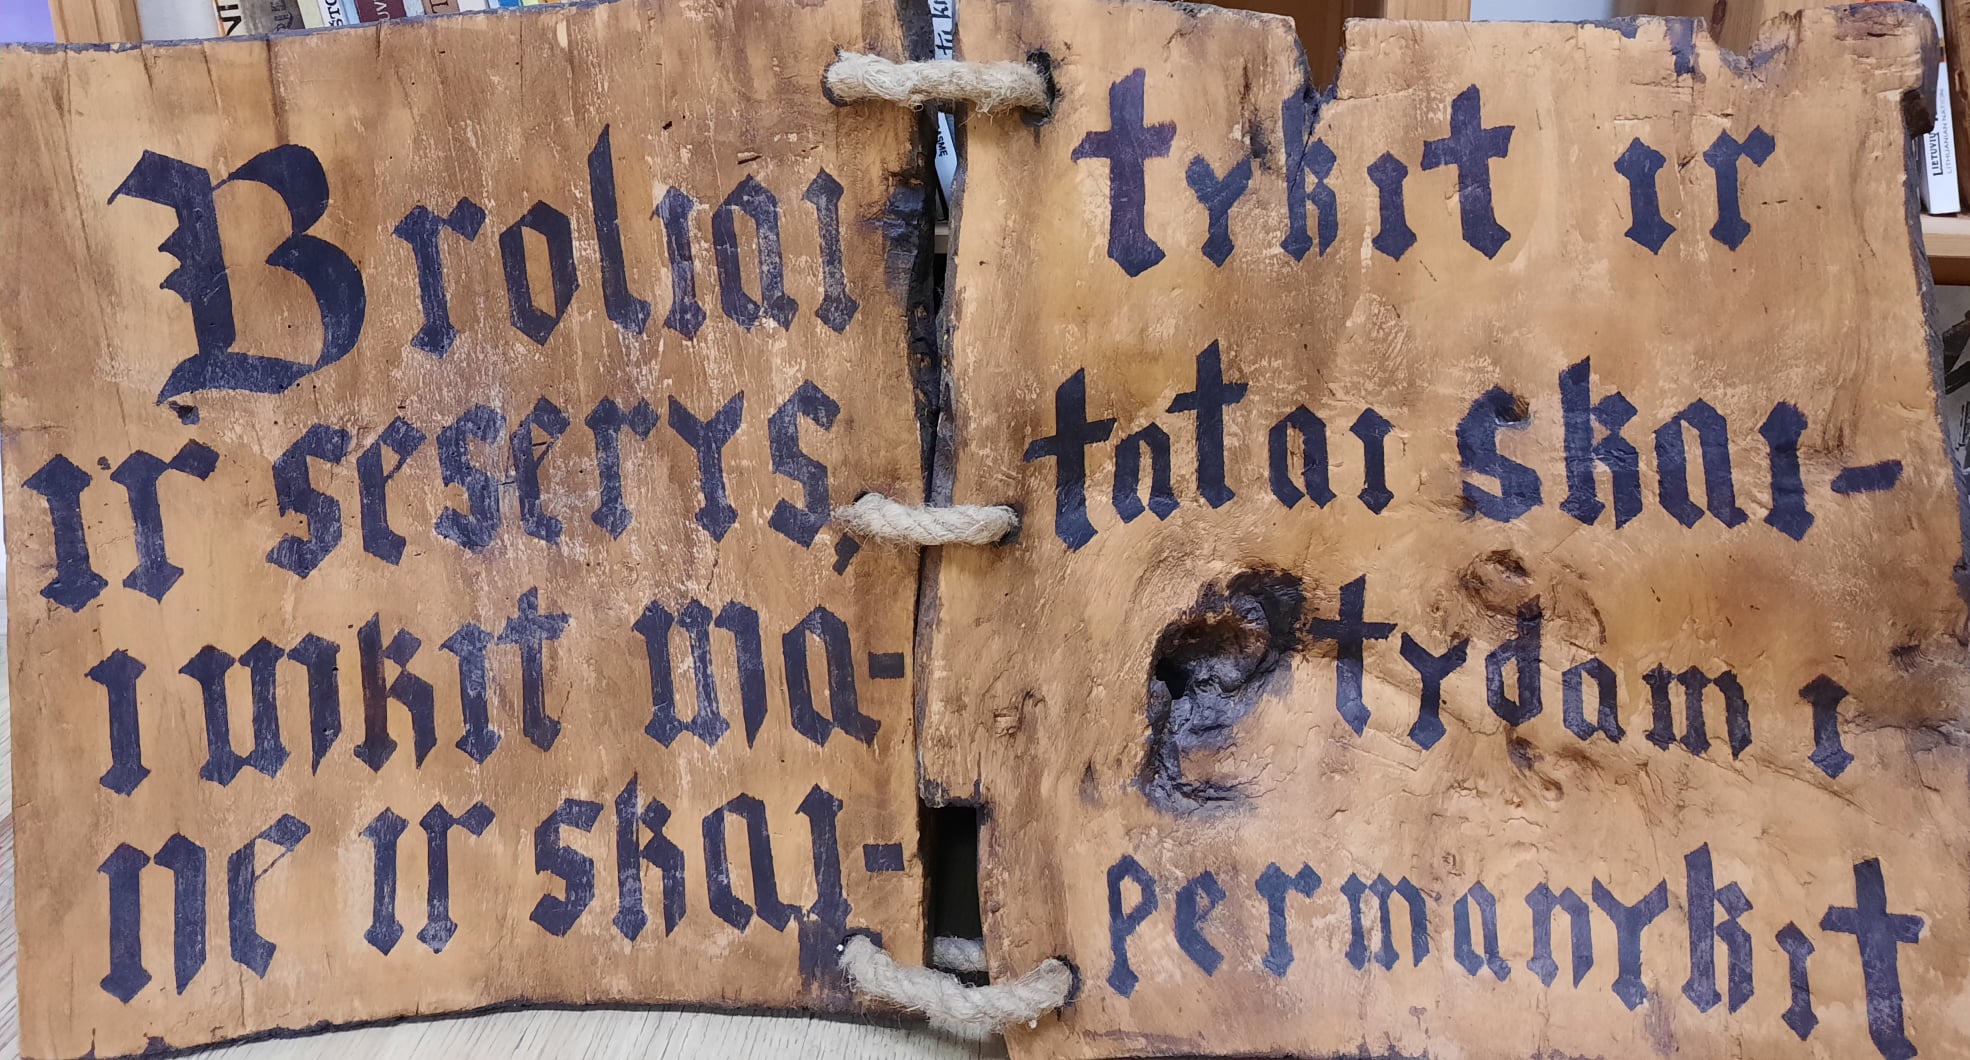 Broliai
ir seserys,
imkit ma-
ne ir skai-
tykit ir
tatai skai-
tydami
permanykit
LITHUANIAN NATION